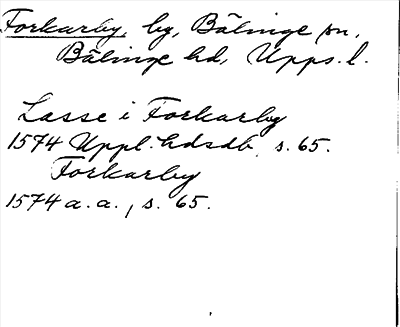 Forkarby, by, Bälinge sn,
Bälinge hd, Upps. l.
Lasse i Forkarby
1574 Uppl. hdsdb, s. 65.
Forkarby
1574 a. a., s. 65.